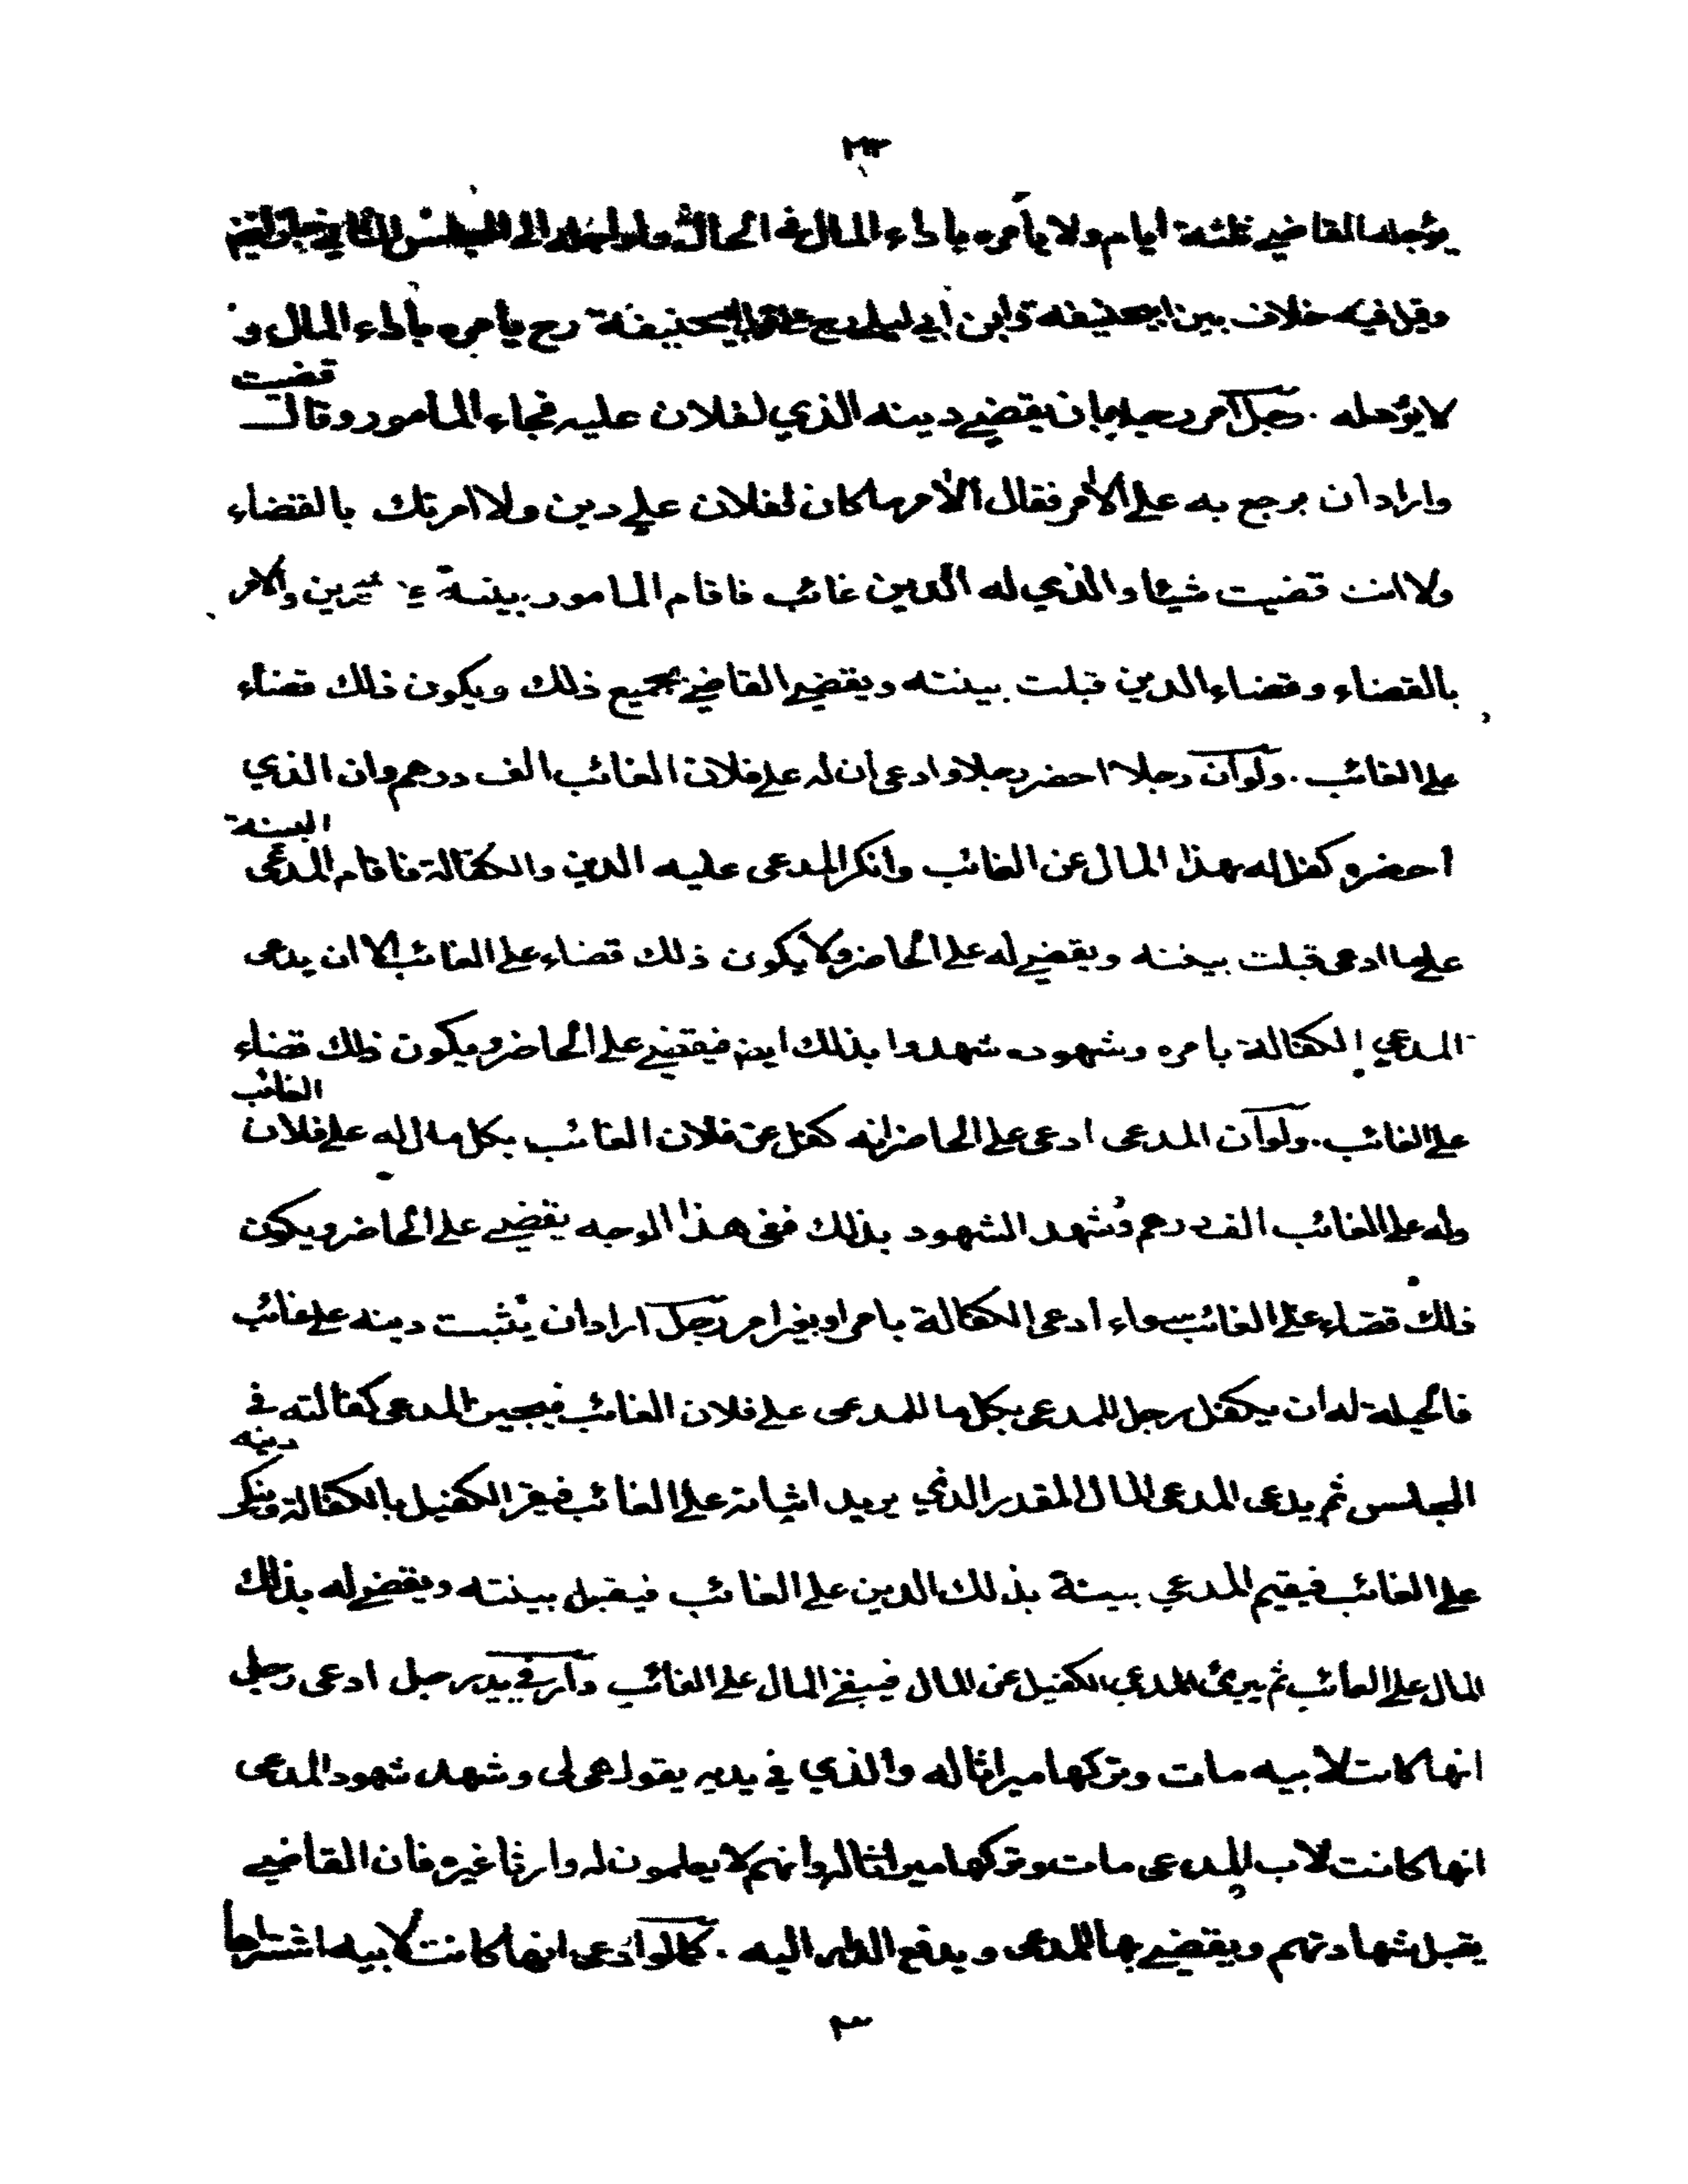 ٢٣
يؤجله القاضي ثلثة ايام ولا يأمره باداء المال في الحال
وقيل فيه خلاف بين ابيحنيفة وابن أبي ليلى رح ابيحنيفة رح يامره باداء المال و
لا يؤجله . رجل آمر رجلا بان يقضي دينه الذي لفلان عليه فجاء المامور وقال قضيت
واراد ان يرجع به على الأمر فقال الأمر ما كان لفلان علي دين ولا امرتك بالقضاء
ولا انت قضيت شيئا والذي له الدين غائب فاقام المامور بينة والامر
بالقضاء وقضاء الدين قبلت بينته ويقضي القاضي بجميع ذلك ويكون ذلك قضاء
على الغائب . ولو أن رجلا احضر رجلا وادعى ان له على فلان الغائب الف درهم وان الذي
احضرو كفل له بهذا المال عن الغائب وانكر المدعى عليه الدين والكفالة فاقام المدعى البينة
على ما ادعى قبلت بينته ويقضي له على الحاضر ولا يكون ذلك قضاء على الغائب الا ان يدعى
المدعي الكفالة بامره وشهوده شهدوا بذلك ايضا فيقضي على الحاضر ويكون ذلك قضاء
على الغائب . ولو أن المدعى ادعى على الحاضر انه كفل عن فلان الغائب بكل مال له على فلان الغائب
وله على الغائب الف درهم وشهد الشهود بذلك ففي هذا الوجه يقضي على الحاضر ويكون
ذلك قضاء على الغائب سواء ادعى الكفالة بامر او بغير امر رجل اراد ان يثبت دينه على غائب
فالحيلة له ان يكفل رجل للمدعى بكل ما للمدعى على فلان الغائب فيجيز المدعى كفالته في
المجلس ثم يدعى المدعى المال المقدر الذي يريد اثباته على الغائب فيقر الكفيل بالكفالة وينكر دينه
على الغائب فيقيم المدعي بينة بذلك الدين على الغائب فيقبل بينته ويقضي له بذلك
المال على الغائب ثم يبرئ المدعي الكفيل عن المال فيبقى المال على الغائب دار في يد رجل ادعى رجل
انها كانت لابيه مات وتركها ميراثا له والذي في يديه يقول هى لى وشهد شهود المدعى
انها كانت لاب المدعى مات وتركها ميراثا له وانهم لا يعلمون له وارثا غيره فان القاضي
يقبل شهادتهم ويقضي بها للمدعى ويدفع الدار اليه . كما لو ادعى انها كانت لابيه اشتراها